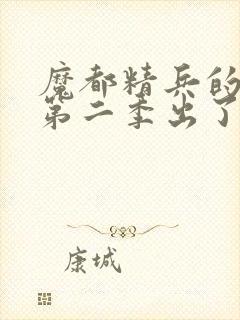 魔都精兵的
第二季出了
康城